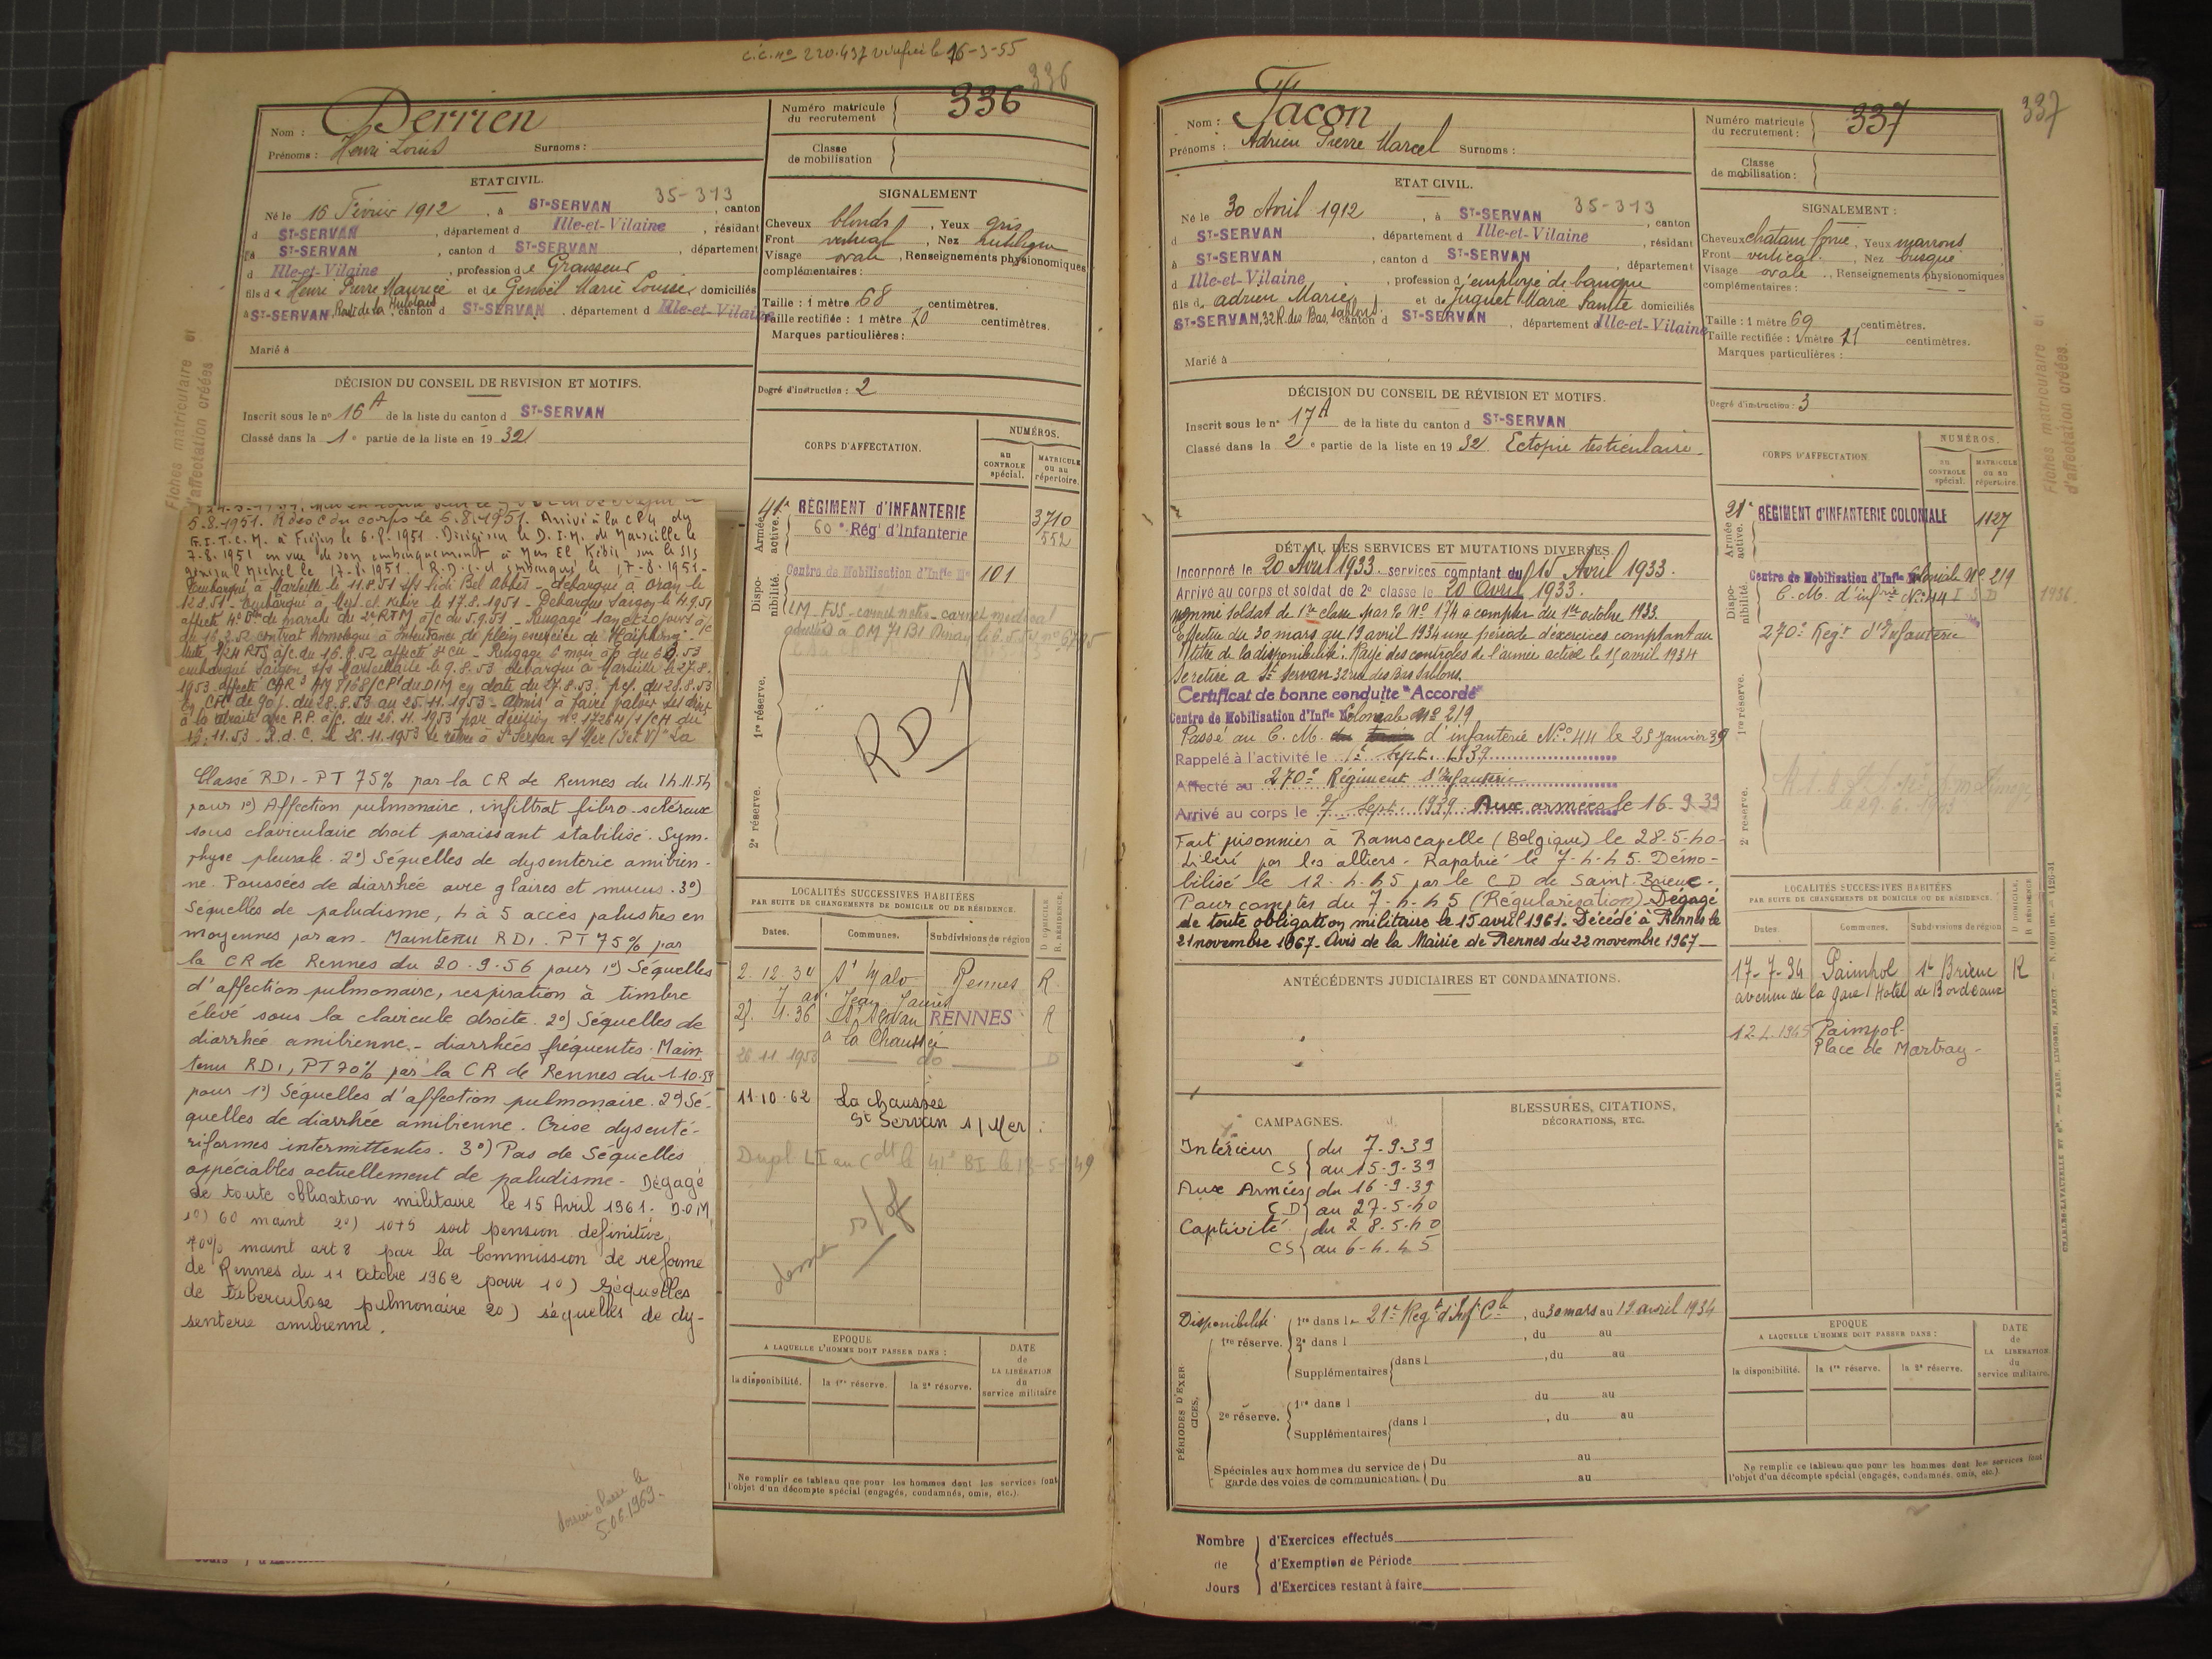 c.c. no 220.437 vérifié le 16-3-55
336
Nom : Derrien
Prénoms : Henri Louis Surnoms :
Numéro matricule du recrutement 336
Classe de mobilisation
ETAT CIVIL.
35-313
Né le 16 Février 1912, à ST-SERVAN, canton
d ST-SERVAN, département d Ille-et-Vilaine, résidant
à ST-SERVAN, canton d ST-SERVAN, département
d Ille-et-Vilaine, profession de Graisseur
fils de Henri Pierre Maurice et de Genoël Marie Louise, domiciliés
à ST-SERVAN, Route de la canton d ST-SERVAN, département d Ille-et-Vilaine
Marié à
SIGNALEMENT
Cheveux blonds, Yeux gris
Front vertical, Nez rectiligne
Visage ovale, Renseignements physionomiques
complémentaires :
Taille : 1 mètre 68 centimètres.
Taille rectifiée : 1 mètre 70 centimètres.
Marques particulières :
Degré d'instruction : 2
DÉCISION DU CONSEIL DE REVISION ET MOTIFS.
Inscrit sous le no 16 A de la liste du canton d ST-SERVAN
Classé dans la 1e partie de la liste en 1932
Fiches matriculaire et
d'affectation créées
CORPS D'AFFECTATION.
NUMÉROS.
au CONTROLE spécial.
MATRICULE ou au répertoire.
Armée active.
41e RÉGIMENT d'INFANTERIE 3710
60e Régt d'Infanterie 552
Disponibilité.
Centre de Mobilisation d'Infie No 101
1re réserve.
RD1
2e réserve.
5.8.1951. R des C du corps le 6.8.1951. Arrivé à la CP4 du
G.I.T.C.M. à Fréjus le 6.8.1951. Dirigé sur le D.I.M. de Marseille le
7.8.1951 en vue de son embarquement à Mers El Kébir sur le S/S
général Michel le 17.8.1951. R.D.C. et embarqué le 17.8.1951-
Embarqué à Marseille le 11.8.51 s/s Sidi Bel Abbès - débarqué à Oran le
12.8.51 - Embarqué à Mers-el-Kébir le 17.8.1951 - Débarqué Saïgon le 4.9.51
affecté 4e Bon de marche du 2e RTM a/c du 5.9.51 - Rengagé 1 an et 20 jours a/c
du 16.2.52 contrat homologué à Intendance de plein exercice de Haïphong -
embarqué Saïgon s/s Marseillaise le 9.8.53 débarqué à Marseille le 27.8.
1953 affecté CAR 3 AM 8168/CP1 du DIM en date du 27.8.53. pcf. du 28.8.53
Cg CFC de 90 j. du 28.8.53 au 25.11.1953 - Admis à faire valoir ses droits
à la retraite avec P.P. a/c. du 26.11.1953 par décision no 17264/1/CH du
16.11.53 - R.d.C. le 26.11.1953 se retire à St Servan s/ Mer (I et V) "La
Classé RD1 - PT 75% par la CR de Rennes du 14.11.54
pour 1o) Affection pulmonaire, infiltrat fibro-scléreux
sous claviculaire droit paraissant stabilisé. Sym-
physe pleurale. 2o) Séquelles de dysenterie amibien-
ne. Poussées de diarrhée avec glaires et mucus. 3o)
Séquelles de paludisme, 4 à 5 accès palustres en
moyennes par an. Maintenu RD1. PT 75% par
la CR de Rennes du 20.9.56 pour 1o) Séquelles
d'affection pulmonaire, respiration à timbre
élevé sous la clavicule droite. 2o) Séquelles de
diarrhée amibienne - diarrhées fréquentes. Main
tenu RD1, PT 70% par la CR de Rennes du 1.10.59
pour 1o) Séquelles d'affection pulmonaire. 2o) Sé-
quelles de diarrhée amibienne. Crise dysenté-
riformes intermittentes. 3o) Pas de Séquelles
appéciables actuellement de paludisme - Dégagé
de toute obligation militaire le 15 Avril 1961. D.O.M.
1o) 60 maint 2o) 10+5 soit pension definitive
70% maint art 8 par la Commission de reforme
de Rennes du 11 Octobre 1962 pour 1o) Séquelles
de tuberculose pulmonaire 2o) séquelles de dy-
senterie amibienne.
5.06.1969.
LOCALITÉS SUCCESSIVES HABITÉES
PAR SUITE DE CHANGEMENTS DE DOMICILE OU DE RÉSIDENCE.
Dates. Communes. Subdivisions de région D. DOMICILE R. RÉSIDENCE
2.12.34 St Malo Rennes R.
7 av. Jean Jaurès
27. 4.36 St Servan RENNES R
à la Chaussée
26.11.1953 do D
11.10.62 La chaussée
St Servan s/ Mer
Dupl. LI au Cdt le 41e BI le 18-5-49
EPOQUE
A LAQUELLE L'HOMME DOIT PASSER DANS :
la disponibilité. la 1re réserve. la 2e réserve.
DATE de LA LIBÉRATION du service militaire
Ne remplir ce tableau que pour les hommes dont les services font
l'objet d'un décompte spécial (engagés, condamnés, omis, etc.).
337
Nom : Facon
Prénoms : Adrien Pierre Marcel Surnoms :
Numéro matricule du recrutement : 337
Classe de mobilisation :
ETAT CIVIL.
35-313
Né le 30 Avril 1912, à ST-SERVAN, canton
d ST-SERVAN, département d Ille-et-Vilaine, résidant
à ST-SERVAN, canton d ST-SERVAN, département
d Ille-et-Vilaine, profession d'employé de banque
fils de Adrien Marie et de Juguet Marie Sainte domiciliés
ST-SERVAN, 32 R. des Bas Sablons canton d ST-SERVAN, département d Ille-et-Vilaine
Marié à
SIGNALEMENT :
Cheveux chatain foncé, Yeux marrons
Front vertical. Nez busqué
Visage ovale., Renseignements physionomiques
complémentaires :
Taille : 1 mètre 69 centimètres.
Taille rectifiée : 1 mètre 71 centimètres.
Marques particulières :
Degré d'instruction : 3
DÉCISION DU CONSEIL DE RÉVISION ET MOTIFS.
Inscrit sous le no 17 A de la liste du canton d ST-SERVAN
Classé dans la 2e partie de la liste en 1932. Ectopie testiculaire.
CORPS D'AFFECTATION
NUMÉROS.
au CONTROLE spécial.
MATRICULE ou au répertoire.
Armée active.
21e RÉGIMENT d'INFANTERIE COLONIALE 1127
Disponibilité.
Centre de Mobilisation d'Infie Coloniale No 219
C. M. d'infrie No 44 I S D 1936
270e Regt d'Infanterie
1re réserve.
2e réserve.
Fiches matriculaire et
d'affectation créées.
DÉTAIL DES SERVICES ET MUTATIONS DIVERSES.
Incorporé le 20 Avril 1933 services comptant du 15 Avril 1933.
Arrivé au corps et soldat de 2e classe le 20 Avril 1933.
nommé soldat de 1re classe par % No 174 à compter du 1er octobre 1933.
Effectue du 30 mars au 12 avril 1934 une période d'exercices comptant au
titre de la disponibilité. Rayé des contrôles de l'armée active le 15 avril 1934
Se retire à St Servan 32 rue des Bas Sablons.
Certificat de bonne conduite "Accordé"
Centre de Mobilisation d'Infie Coloniale No 219
Passé au C. M. d'infanterie No 44 le 25 Janvier 39
Rappelé à l'activité le 1er Sept. 1939
Affecté au 270e Régiment d'Infanterie
Arrivé au corps le 7 Sept. 1939. Aux armées le 16-9-39
Fait pisonnier à Ramscapelle (Belgique) le 28-5-40-
Libéré par les alliers - Rapatrié le 7-4-45. Démo-
bilisé le 12-4-45 par le CD de Saint-Brieuc -
Pour compter du 7-4-45 (Régularisation). Dégagé
de toute obligation militaire le 15 avril 1961. Décédé à Rennes le
21 novembre 1967 - Avis de la Mairie de Rennes du 22 novembre 1967
ANTÉCÉDENTS JUDICIAIRES ET CONDAMNATIONS.
CAMPAGNES.
Intérieur CS du 7-9-39 au 15-9-39
Aux Armées CD du 16-9-39 au 27-5-40
Captivité CS du 28-5-40 au 6-4-45
BLESSURES, CITATIONS,
DÉCORATIONS, ETC.
LOCALITÉS SUCCESSIVES HABITÉES
PAR SUITE DE CHANGEMENTS DE DOMICILE OU DE RÉSIDENCE.
Dates. Communes. Subdivisions de région D. DOMICILE R. RÉSIDENCE
17-7-34 Paimpol St Brieuc R
avenue de la gare Hotel de Bordeaux
12-4-1945 Paimpol-
Place de Martray-
CHARLES-LAVAUZELLE ET Cie. — PARIS, LIMOGES, NANCY
PÉRIODES D'EXERCICES.
Disponibilité 1re dans le 21e Regt d'Inf Cle, du 30 mars au 12 avril 1934
1re réserve. 2e dans l , du au
Supplémentaires dans l , du au
2e réserve. 1re dans l du au
Supplémentaires dans l , du au
Spéciales aux hommes du service de Du au
garde des voies de communication. Du au
EPOQUE
A LAQUELLE L'HOMME DOIT PASSER DANS :
la disponibilité. la 1re réserve. la 2e réserve.
DATE de LA LIBÉRATION du service militaire.
Ne remplir ce tableau que pour les hommes dont les services font
l'objet d'un décompte spécial (engagés, condamnés, omis, etc.).
Nombre de Jours
d'Exercices effectués
d'Exemption de Période
d'Exercices restant à faire